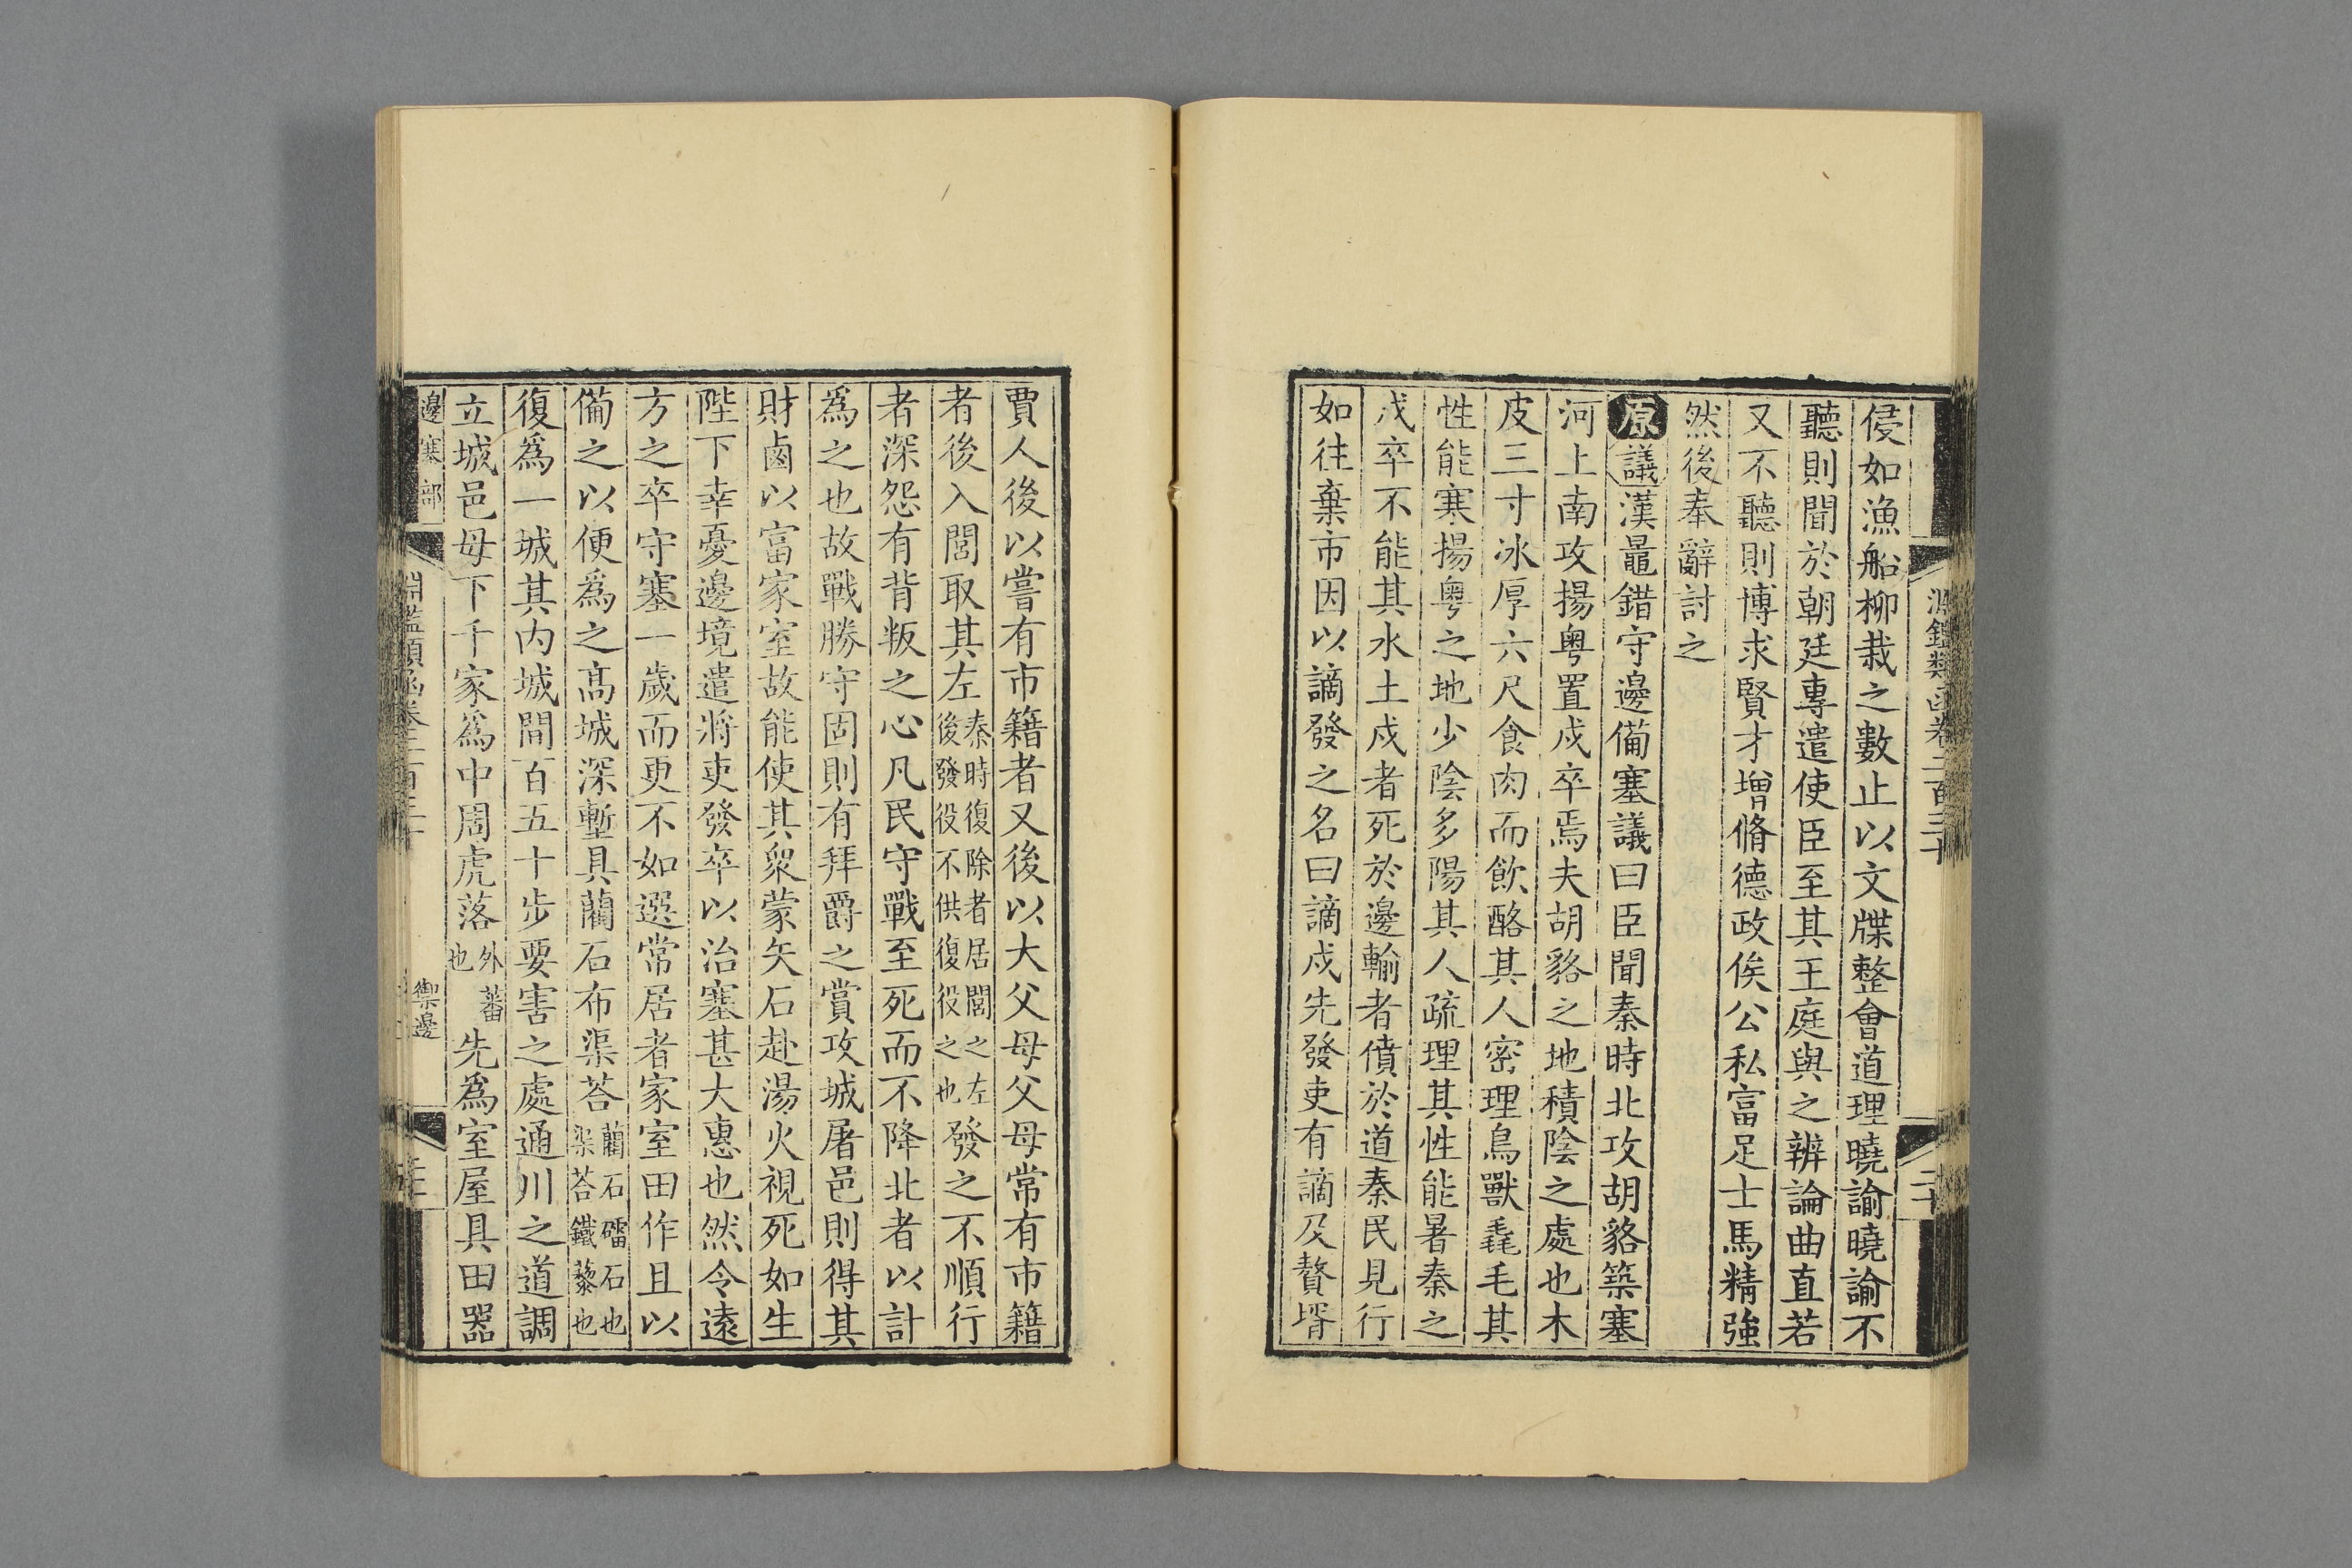 淵鑑類函卷二百三十
二十
侵如漁船柳栽之數止以文牒整會道理曉諭曉諭不
聽則聞於朝廷專遣使臣至其王庭與之辨論曲直若
又不聽則博求賢才增脩德政俟公私富足士馬精強
然後奉辭討之
原議漢鼂錯守邊備塞議曰臣聞秦時北攻胡貉築塞
河上南攻揚粵置戍卒焉夫胡貉之地積陰之處也木
皮三寸冰厚六尺食肉而飲酪其人密理鳥獸毳毛其
性能寒揚粵之地少陰多陽其人疏理其性能暑秦之
戍卒不能其水土戍者死於邊輸者僨於道秦民見行
如往棄市因以謫發之名曰謫戍先發吏有謫及贅壻
賈人後以嘗有市籍者又後以大父母父母常有市籍
者後入閭取其左秦時復除者居閭之左後發役不供復役之也發之不順行
者深怨有背叛之心凡民守戰至死而不降北者以計
爲之也故戰勝守固則有拜爵之賞攻城屠邑則得其
財鹵以富家室故能使其衆蒙矢石赴湯火視死如生
陛下幸憂邊境遣將吏發卒以治塞甚大惠也然令遠
方之卒守塞一歲而更不如選常居者家室田作且以
備之以便爲之高城深塹具藺石布渠荅藺石礌石也渠荅鐵蒺也
復爲一城其内城間百五十步要害之處通川之道調
立城邑毋下千家爲中周虎落外蕃也先爲室屋具田器
邊塞部
淵鑑類函卷二百三十
禦邊